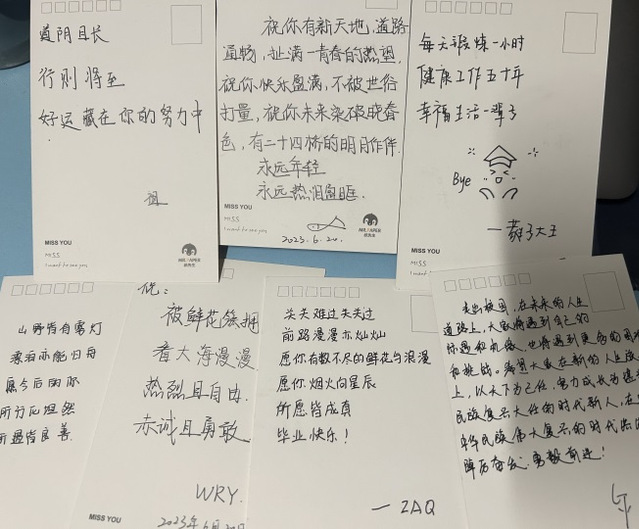 道阻且长
行则将至
好运藏在你的努力中
MISS YOU
MISS
I want to see you
祝你有新天地,道路
通畅,扯满一青春的热望
祝你快乐盈满,不被世俗
打量,祝你未来染破晓春
色,有二十四桥的明月作伴.
永远年轻
永远热泪盈眶.
MISS YOU
MISS
I want to see you
2023.6.20.
每天锻炼一小时
健康工作五十年
幸福生活一辈子
Bye
大王
MISS YOU
MISS
I want to see you
山野皆有雾灯
漂泊亦能归舟
愿今后的你
所行化坦然
所遇皆良善.
祝:
被鲜花簇拥
看大海漫漫
热烈且自由
赤诚且勇敢
WRY.
2023年6月20日
MISS YOU
关关难过关关过
前路漫漫亦灿灿
愿你有数不尽的鲜花与浪漫
愿你烟火向星辰
所愿皆成真
毕业快乐!
一 ZAQ
走出校园,在未来的人生
道路上,大家将遇到自己的
际遇和机会,也将遇到更多的困难
和挑战。希望大家在新的人生
上,以天下为己任,努力成长为堪当
民族复兴大任的时代新人,在
中华民族伟大复兴的时代
踔厉奋发、勇毅前进!